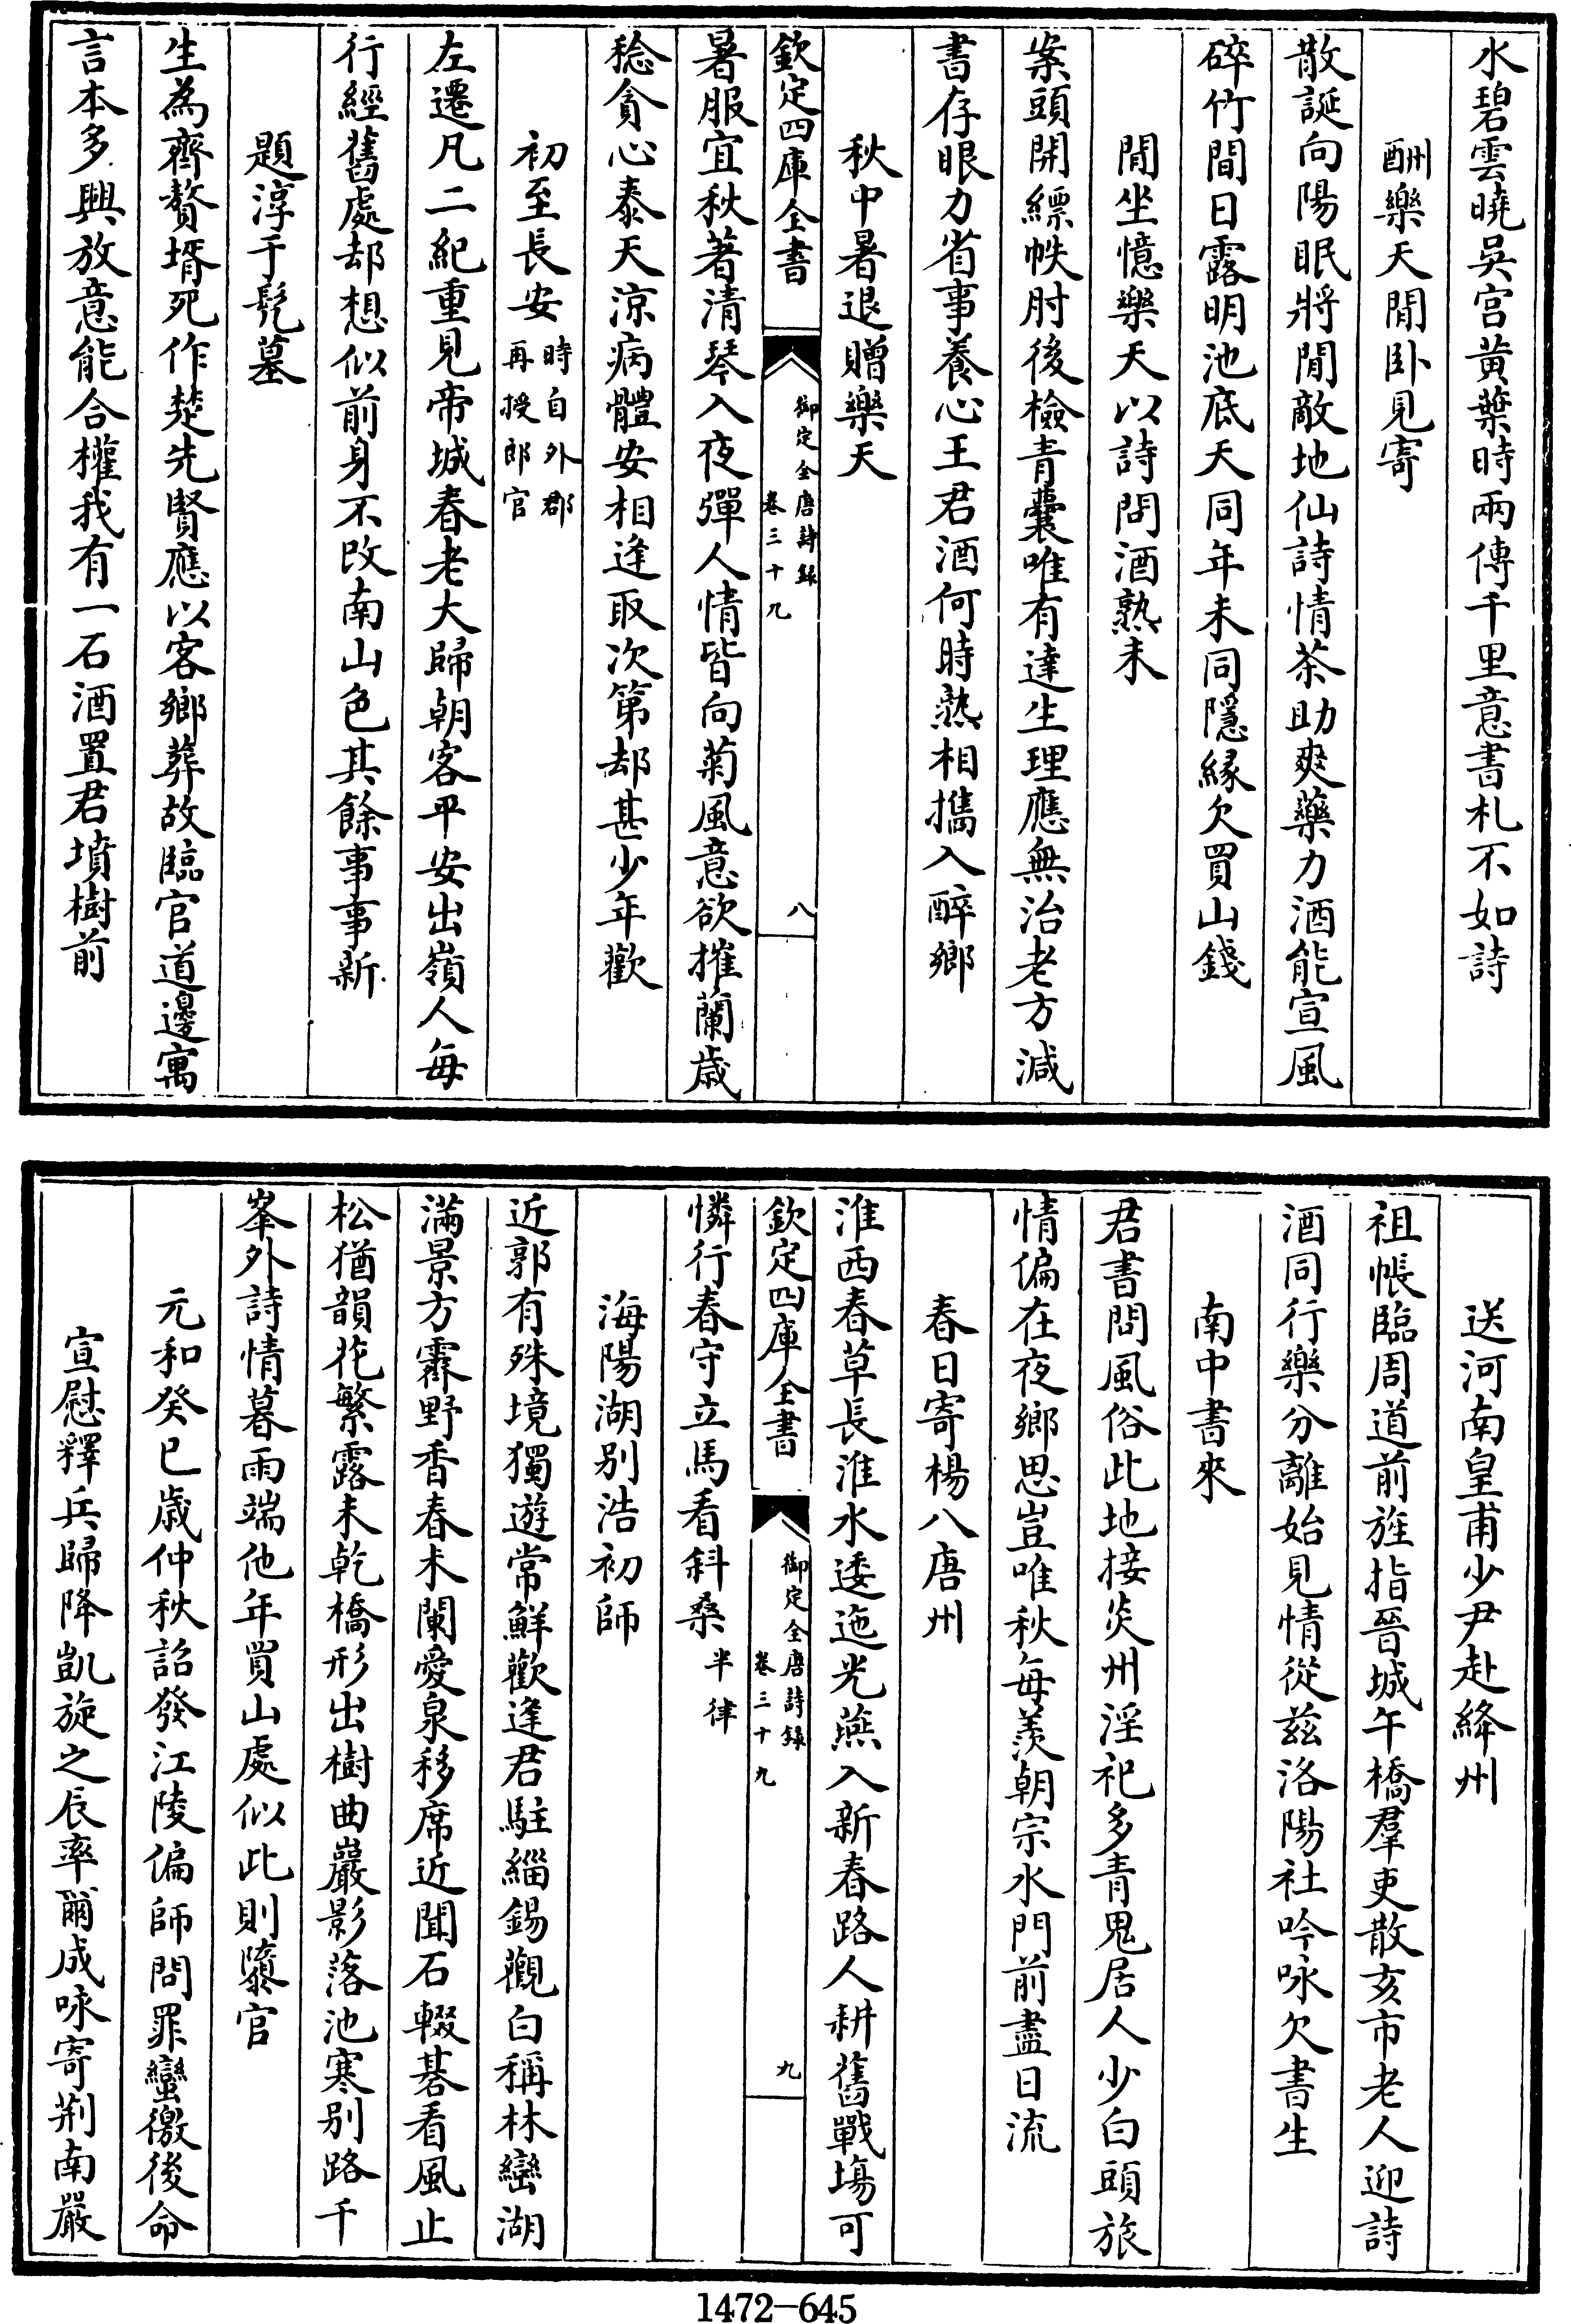 水碧雲曉吳宮黃葉時兩傳千里意書札不如詩
酬樂天閒卧見寄
散誕向陽眠將閒敵地仙詩情茶助爽藥力酒能宣風
碎竹間日露明池底天同年未同隱緣欠買山錢
閒坐憶樂天以詩問酒熟未
案頭開縹帙肘後檢青囊唯有達生理應無治老方減
書存眼力省事養心王君酒何時熟相攜入醉鄉
秋中暑退贈樂天
欽定四庫全書
御定全唐詩錄
卷三十九
八
暑服宜秋著清琴入夜彈人情皆向菊風意欲摧蘭歲
稔貪心泰天涼病體安相逢取次第却甚少年歡
初至長安
時自外郡
再授郎官
左遷凡二紀重見帝城春老大歸朝客平安出嶺人每
行經舊處却想似前身不改南山色其餘事事新
題淳于髡墓
生為齊贅壻死作楚先賢應以客鄉葬故臨官道邊寓
言本多興放意能合權我有一石酒置君墳樹前
送河南皇甫少尹赴絳州
祖帳臨周道前旌指晉城午橋羣吏散亥市老人迎詩
酒同行樂分離始見情從茲洛陽社吟咏欠書生
南中書來
君書問風俗此地接炎州淫祀多青鬼居人少白頭旅
情偏在夜鄉思豈唯秋每羨朝宗水門前盡日流
春日寄楊八唐州
淮西春草長淮水逶迤光燕入新春路人耕舊戰塲可
欽定四庫全書
御定全唐詩錄
卷三十九
九
憐行春守立馬看斜桑
半律
海陽湖别浩初師
近郭有殊境獨遊常鮮歡逢君駐緇錫觀白稱林巒湖
滿景方霽野香春未闌愛泉移席近聞石輟碁看風止
松猶韻花繁露未乾橋形出樹曲巖影落池寒别路千
峯外詩情暮雨端他年買山處似此則隳官
元和癸巳歲仲秋詔發江陵偏師問罪蠻徼後命
宣慰釋兵歸降凱旋之辰率爾成咏寄荆南嚴
1472-645